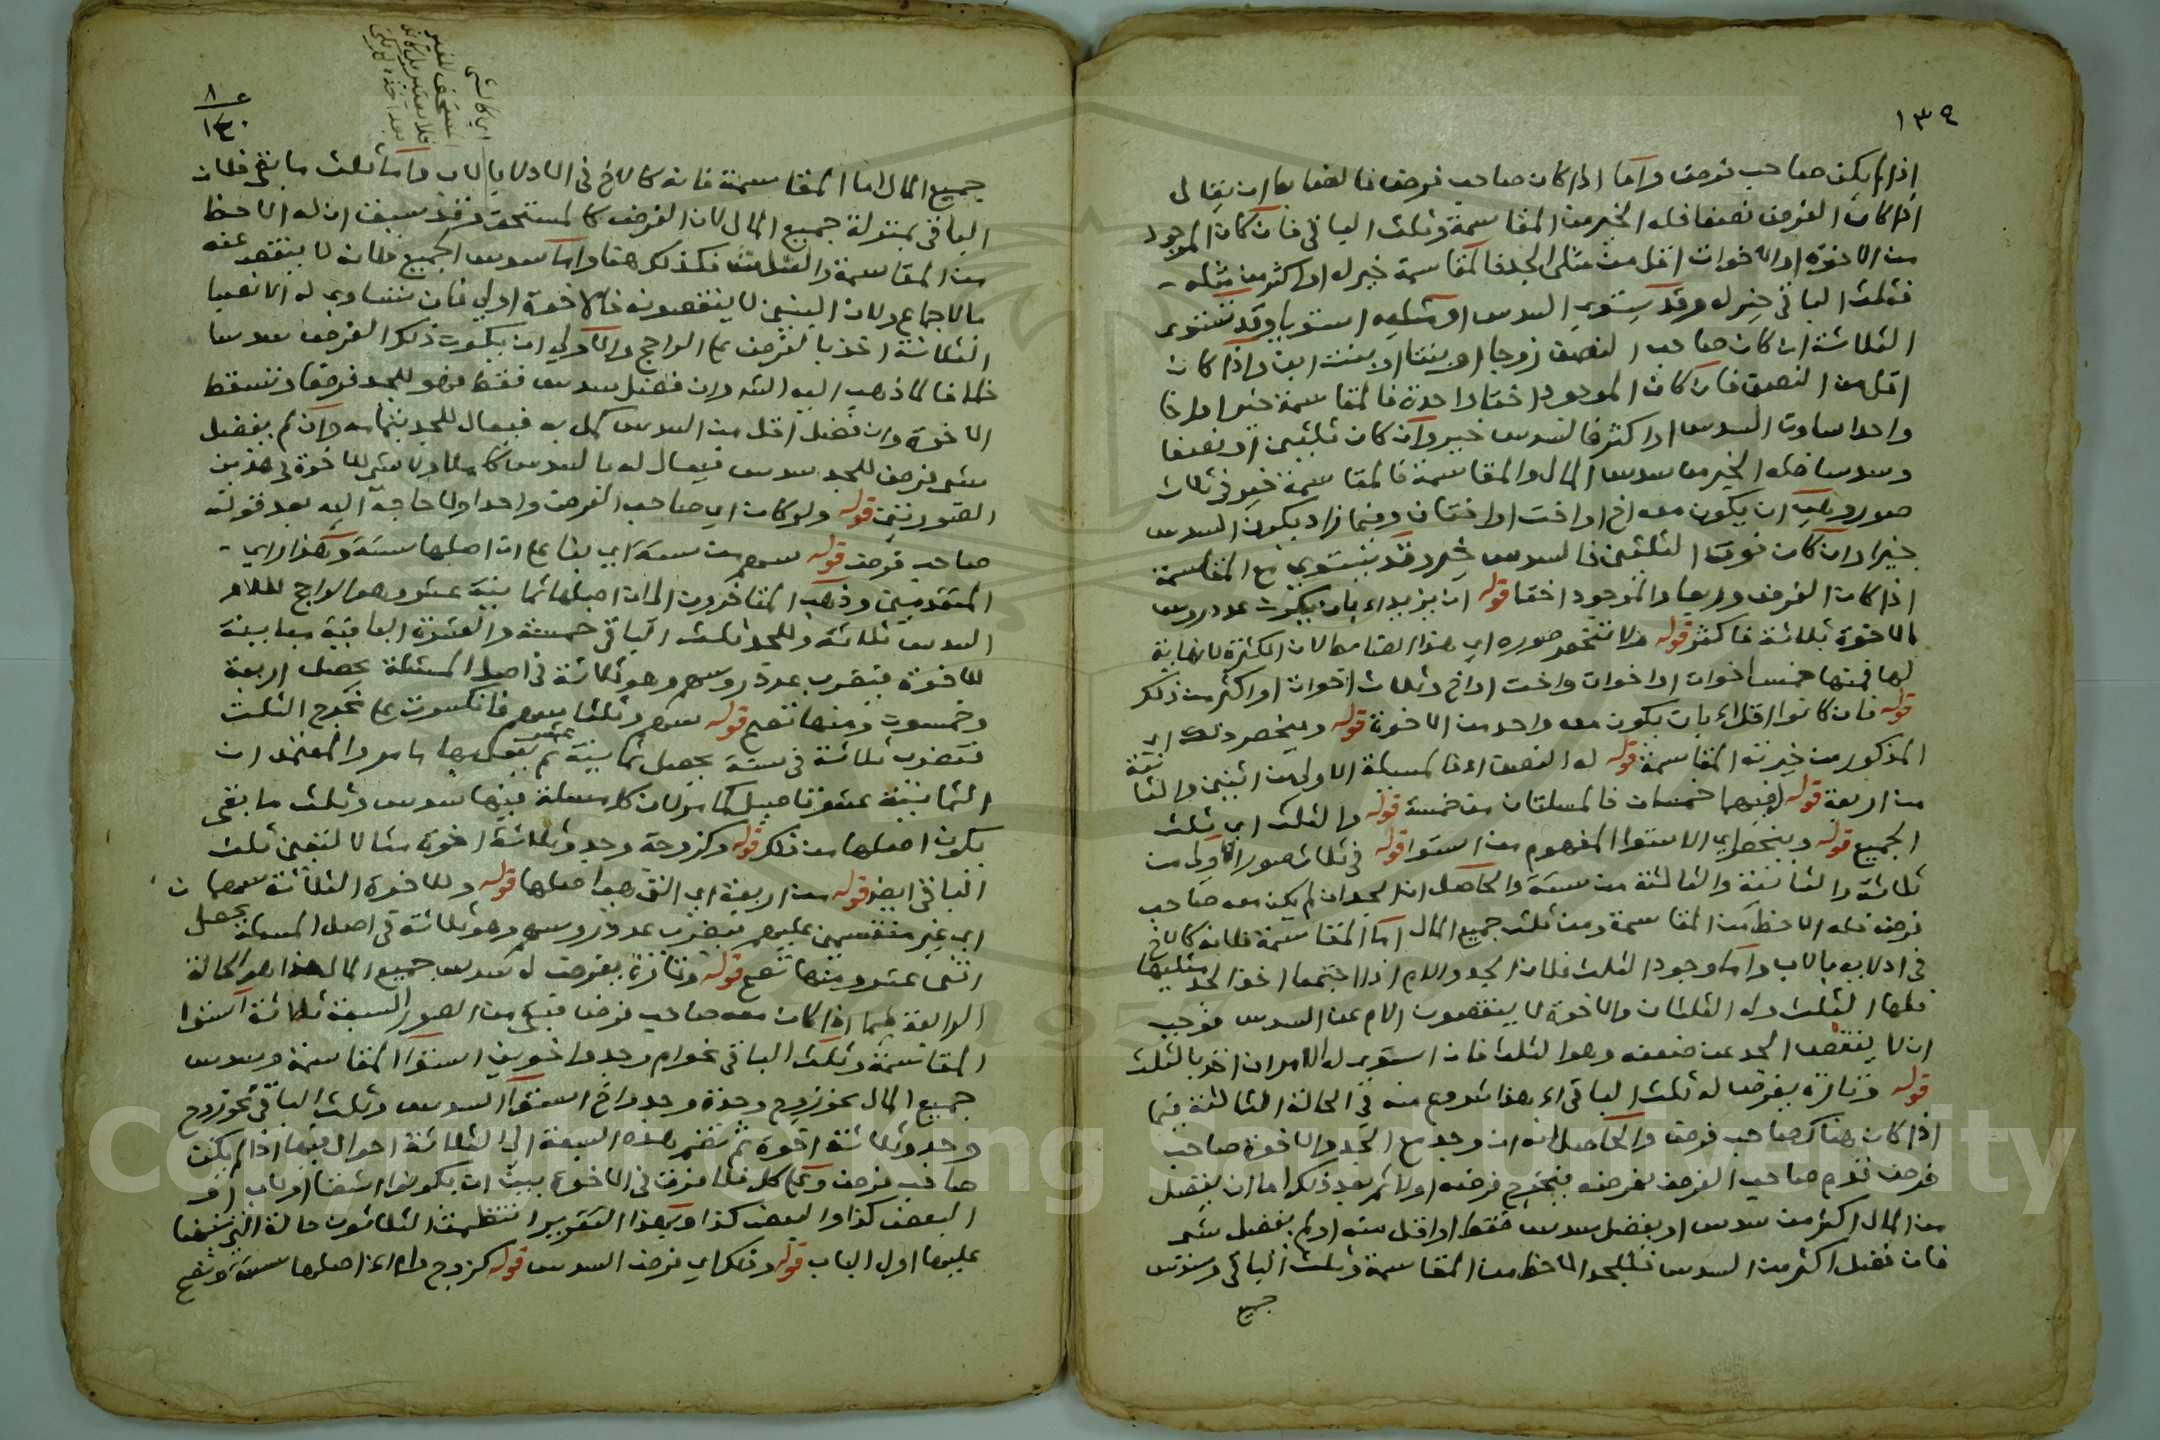 ١٣٩
اذا لم يكن صاحب فرض واما اذا كان صاحب فرض فالضابط ان يقال
اذا كان الفرض نصفا فله الخير من المقاسمة وثلث الباقي فان كان الموجود
من الاخوة او الاخوات اقل من مثلي الجد فالمقاسمة خير له او اكثر من مثليه
فثلث الباقي خير له وقد يستوي السدس او مثليه استويا وقد تستوي
الثلاثة ان كان صاحب النصف زوجا او بنتا او بنت ابن واذا كان
اقل من النصف فان كان الموجود اختا واحدة فالمقاسمة خير او اخا
واحدا ساوت السدس او اكثر فالسدس خير وان كان ثلثين او نصفا
وسدسا فله الخير من سدس المال والمقاسمة فالمقاسمة خير في ثلاث
صور وهي ان يكون معه اخ او اخت او اختان وفيما زاد يكون السدس
خيرا وان كان فوق الثلثين فالسدس خير وقد يستوي مع المقاسمة
اذا كان الفرض وربعا والموجود اختا قوله ان يزيدا اي بان يكون عدد روس
الاخوة ثلاثة فاكثر قوله ولا تنحصر صوره اي هذا القسم لان الكثرة لا نهاية
لها فمنها خمس اخوات او اخوات واخت او اخ وثلاث اخوات او اكثر من ذلك
قوله فان كانوا اقل اي بان يكون معه واحد من الاخوة قوله وينحصر ذلك اي
المذكور من خيرية المقاسمة قوله له النصف اي فالمسئلة الاولى من اثنين والثانية
من اربعة قوله فيهما خمسان فالمسئلتان من خمسة قوله والثلث اي ثلث
الجميع قوله وينحصر اي الاستوا المفهوم من استوا قوله في ثلاث صور الاولى من
ثلاثة والثانية والثالثة من ستة والحاصل ان الجد ان لم يكن معه صاحب
فرض فله الاحظ من المقاسمة ومن ثلث جميع المال اما المقاسمة فلانه كالاخ
في ادلايه بالاب واما وجود الثلث فلان الجد والام اذا اجتمعا اخذ الجد مثليها
فلها الثلث وله الثلثان والاخوة لا ينقصون الام عن السدس فوجب
ان لا ينقصوا الجد عن ضعفه وهو الثلث فان استوى له الامران اخذ بالثلث
قوله وتارة يفرض له ثلث الباقي اي هذا شروع منه في الحالة الثالثة فيما
اذا كان هناك صاحب فرض والحاصل انه ان وجد مع الجد والاخوة صاحب
فرض قدم صاحب الفرض بفرضه فيخرج فرضه اولا ثم بعد ذلك اما ان يفضل
من المال اكثر من سدس او يفضل سدس فقط او اقل منه او لم يفضل شي
فان فضل اكثر من السدس فللجد الاحظ من المقاسمة وثلث الباقي وسدس
جميع
٨
١٤٠
جميع المال اما المقاسمة فانه كالاخ في الادلا بالاب واما ثلث ما بقي فلان
الباقي بمنزلة جميع المال لان الفرض كالمستحق وقد سبق ان له الاحظ
من المقاسمة والثلث فكذلك هنا واما سدس الجميع فلانه لا ينقص عنه
بالاجماع ولان البنين لا ينقصونه فالاخوة اولى فان تساوى له الانصبا
الثلاثة اخذ بالفرض على الراجح والاولى ان يكون ذلك الفرض سدسا
خلافا لما ذهب اليه الشه وان فضل سدس فقط فهو للجد فرضا وتسقط
الاخوة وان فضل اقل من السدس كمل به فيعال للجد بتمامه وان لم يفضل
شي فرض للجد سدس فيعال له بالسدس كاملا ولا شي للاخوة في هذين
الصورتين قوله ولو كان اي صاحب الفرض واحدا ولا حاجة اليه بعد قوله
صاحب فرض قوله سهم من ستة اي بنا على ان اصلها ستة وهذا راي
المتقدمين وذهب المتاخرون الى ان اصلها ثمانية عشر وهو الراجح للام
السدس ثلاثة وللجد ثلث الباقي خمسة والعشرة الباقية مباينة
للاخوة فيضرب عدد روسهم وهو ثلاثة في اصل المسئلة يحصل اربعة
وخمسون ومنها تصح قوله سهم وثلثا سهم فانكسرت على مخرج الثلث
فتضرب ثلاثة في ستة يحصل ثمانية عشر ثم يعمل بها ما مر والمعتمد ان
الثمانية عشر تاصيل كما مر لان كل مسئلة فيها سدس وثلث ما بقي
يكون اصلها من ذلك قوله وكزوجة وجد وثلاثة اخوة مثالا لتعين ثلث
الباقي ايض قوله من اربعة اي التي هي اصلها قوله وللاخوة الثلاثة سهمان
اي غير منقسمين عليهم يضرب عدد روسهم وهو ثلاثة في اصل المسئلة يحصل
اثنى عشر ومنها تصح قوله وتارة يفرض له سدس جميع المال هذا هو الحالة
الرابعة فيما اذا كان معه صاحب فرض فبقي من الصور السبعة ثلاثة استوا
المقاسمة وثلث الباقي نحو ام وجد واخوين استوا المقاسمة وسدس
جميع المال نحو زوج وجدة وجد واخ استوا السدس وثلث الباقي نحو زوج
وجد وثلاثة اخوة ثم تضم هذه السبعة الى الثلاثة احوال فيها اذا لم يكن
صاحب فرض وعلى كل فلا فرق في الاخوة بين ان يكونوا اشقا او لاب او
البعض كذا والبعض كذا وبهذا التقرير انتظمت الثلاثون حالة التي نبهنا
عليها اول الباب قوله وذلك اي فرض السدس قوله كزوج وام اي اصلها ستة وتصح